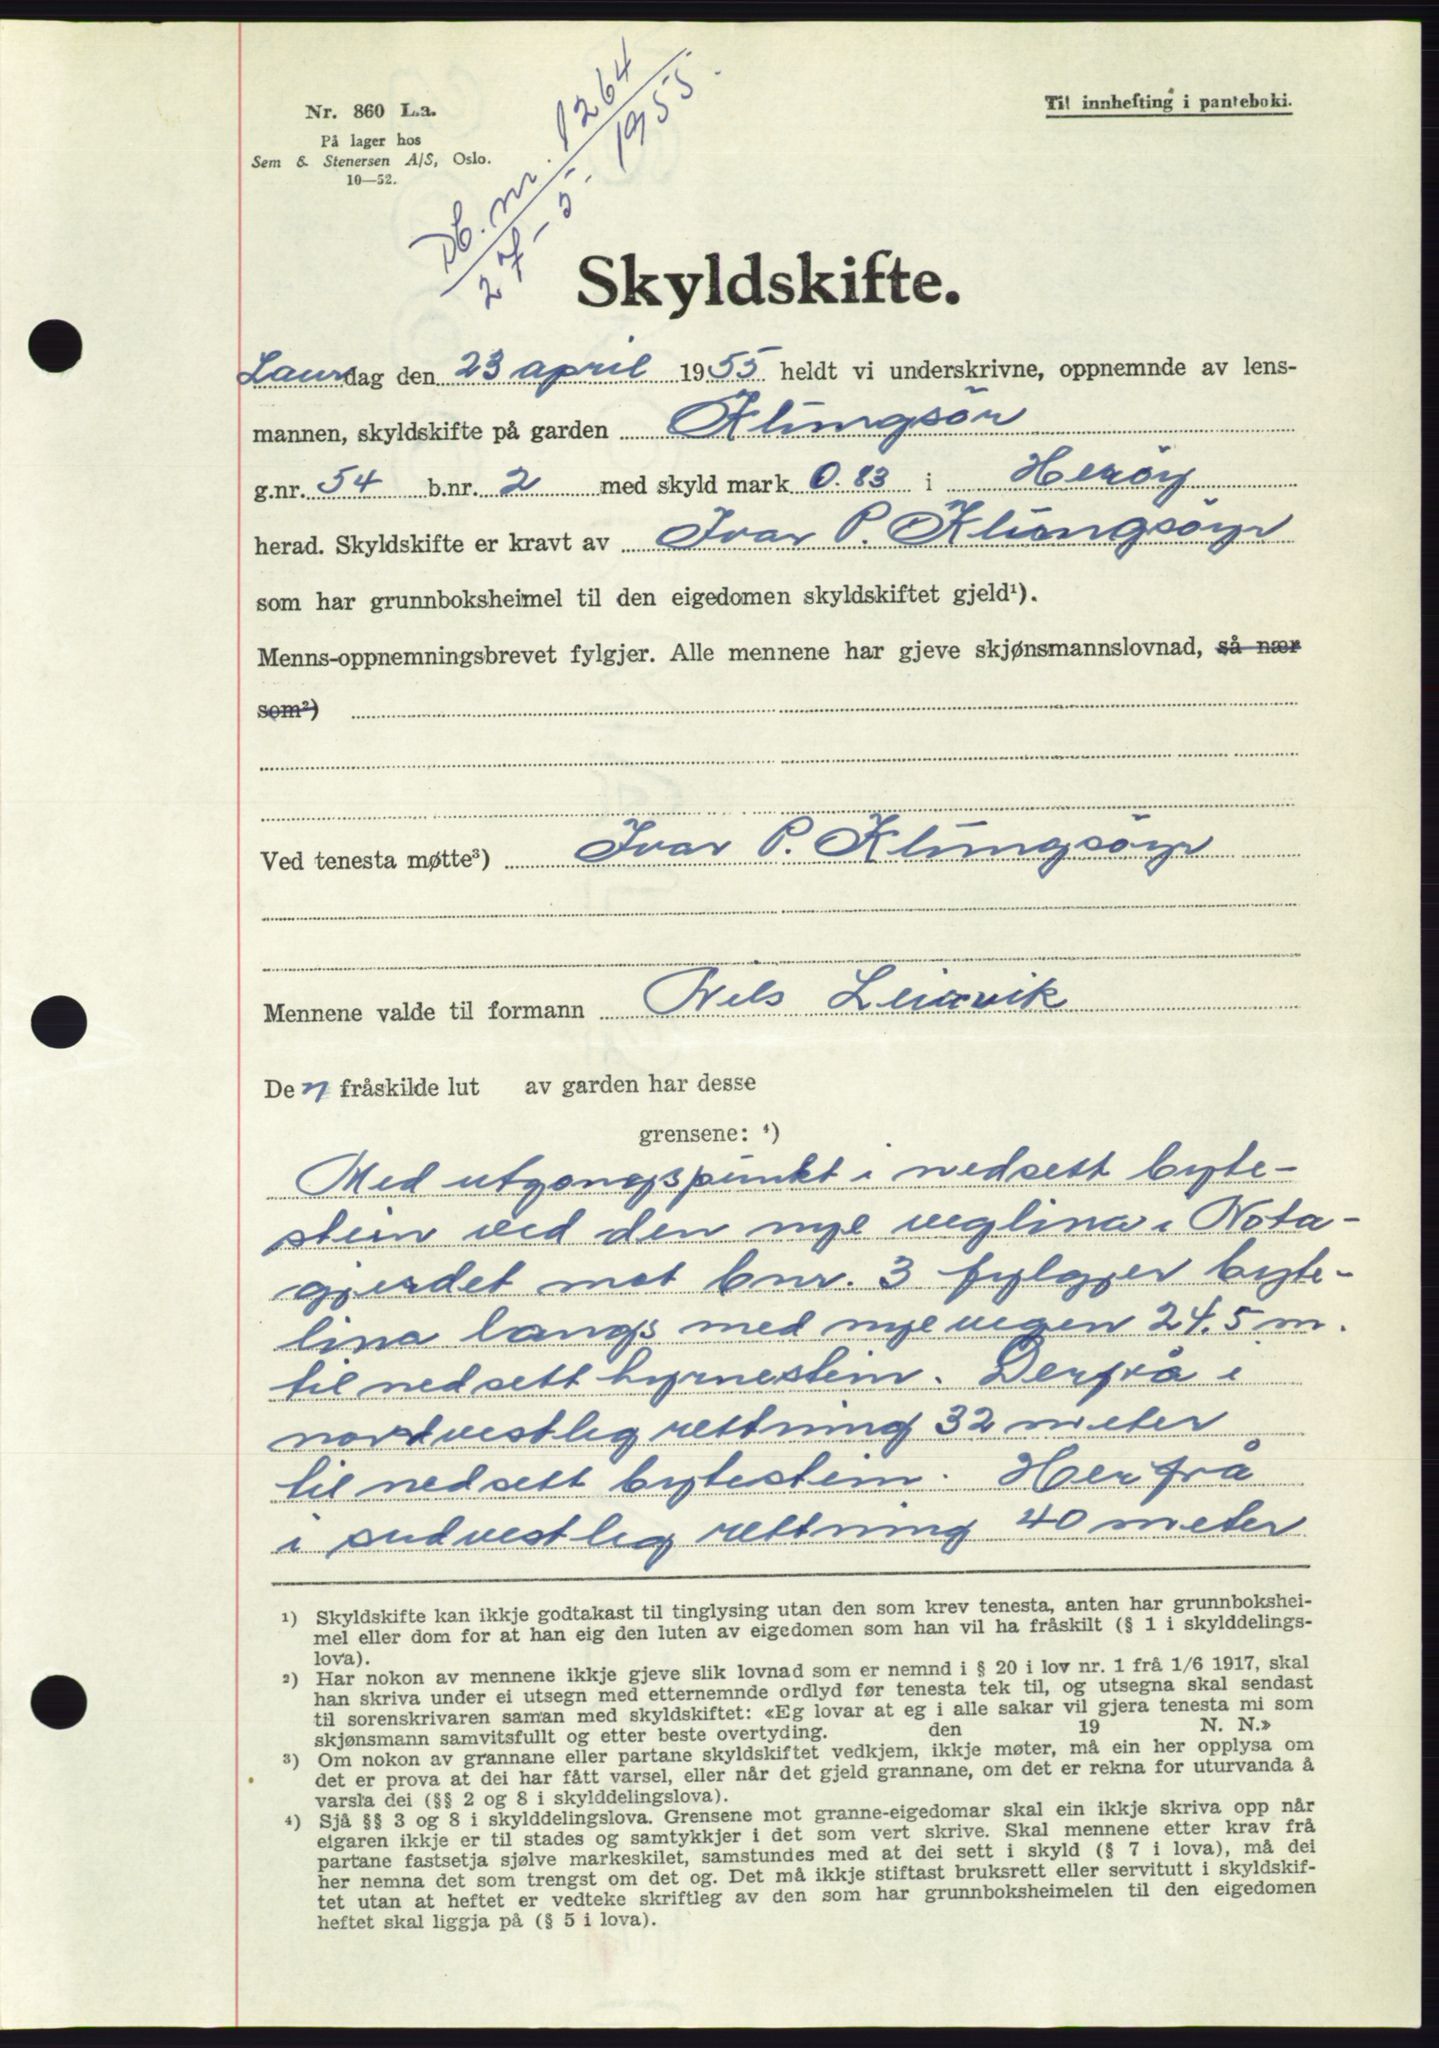 Nr. 860 La.
På lager hos
Sem & Stenersen A/S, Oslo.
10—52.
Db. nr. 1264
27-5-1955.
Til innhefting i panteboki.
Skyldskifte.
Laurdag den 23 april 1955 heldt vi underskrivne, oppnemnde av lens-
mannen, skyldskifte på garden Klungsör
g.nr. 54 b.nr. 2 med skyld mark 0.83 i Heröy
herad. Skyldskifte er kravt av Ivar P. Klungsöyr
som har grunnboksheimel til den eigedomen skyldskiftet gjeld¹).
Menns-oppnemningsbrevet fylgjer. Alle mennene har gjeve skjønsmannslovnad, så nær
som²)
Ved tenesta møtte³) Ivar P. Klungsöyr
Mennene valde til formann Nils Leinvik
Den fråskilde lut av garden har desse
grensene: ⁴)
Med utgangspunkt i nedsett byte-
stein ved den nye veglina i Nota-
gjerdet mot bnr. 3 fylgjer byte-
lina langs med nye vegen 24,5 m.
til nedsett hyrnestein. Derfrå i
nordvestleg rettning 32 meter
til nedsett bytestein. Herfrå
i sudvestleg rettning 40 meter
¹) Skyldskifte kan ikkje godtakast til tinglysing utan den som krev tenesta, anten har grunnbokshei-
mel eller dom for at han eig den luten av eigedomen som han vil ha fråskilt (§ 1 i skylddelings-
lova).
²) Har nokon av mennene ikkje gjeve slik lovnad som er nemnd i § 20 i lov nr. 1 frå 1/6 1917, skal
han skriva under ei utsegn med etternemnde ordlyd før tenesta tek til, og utsegna skal sendast
til sorenskrivaren saman med skyldskiftet: «Eg lovar at eg i alle sakar vil gjera tenesta mi som
skjønsmann samvitsfullt og etter beste overtyding. den 19 N. N.»
³) Om nokon av grannane eller partane skyldskiftet vedkjem, ikkje møter, må ein her opplysa om
det er prova at dei har fått varsel, eller når det gjeld grannane, om det er rekna for uturvanda å
varsla dei (§§ 2 og 8 i skylddelingslova).
⁴) Sjå §§ 3 og 8 i skylddelingslova. Grensene mot granne-eigedomar skal ein ikkje skriva opp når
eigaren ikkje er til stades og samtykkjer i det som vert skrive. Skal mennene etter krav frå
partane fastsetja sjølve markeskilet, samstundes med at dei sett i skyld (§ 7 i lova), må dei
her nemna det som trengst om det og. Det må ikkje stiftast bruksrett eller servitutt i skyldskif-
tet utan at heftet er vedteke skriftleg av den som har grunnboksheimelen til den eigedomen
heftet skal liggja på (§ 5 i lova).